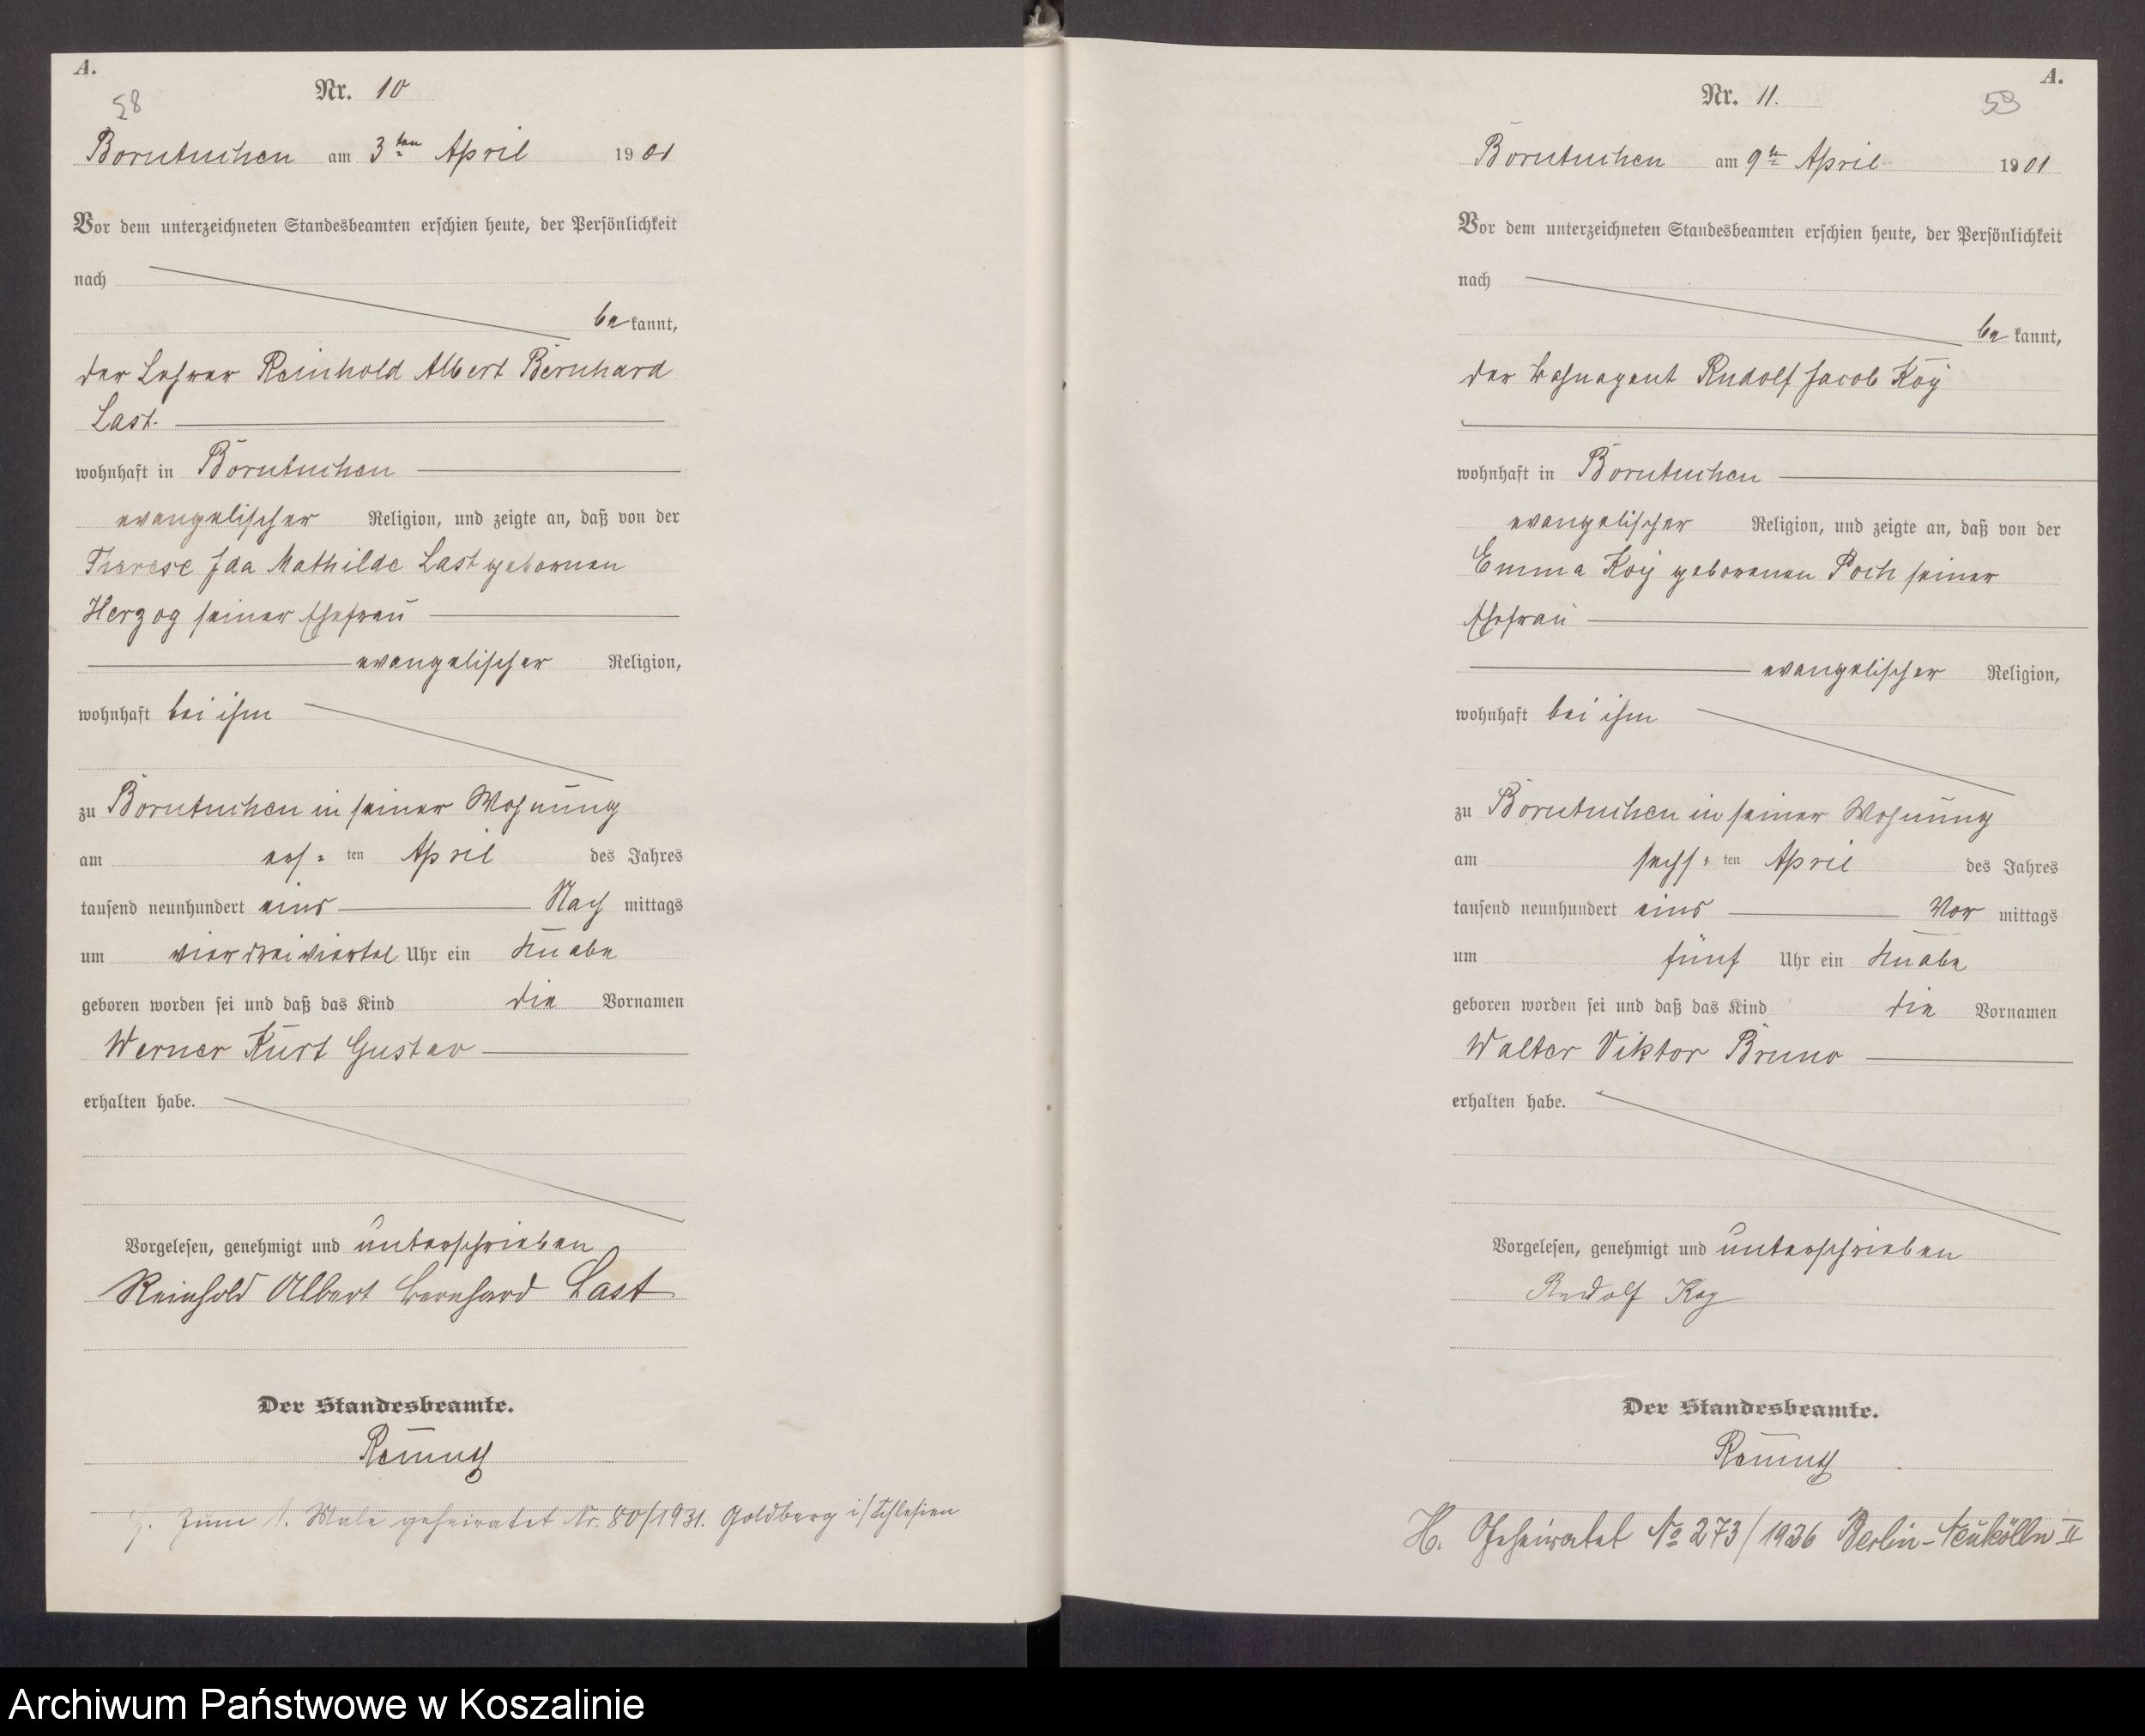 A.
58
Nr. 10
Borntuchen am 3ten April 1901
Vor dem unterzeichneten Standesbeamten erschien heute, der Persönlichkeit
nach
be kannt,
der Lehrer Reinhold Albert Bernhard
Last.
wohnhaft in Borntuchen
evangelischer Religion, und zeigte an, daß von der
Therese Ida Mathilde Last gebornen
Herzog seiner Ehefrau
evangelischer Religion,
wohnhaft bei ihm
zu Borntuchen in seiner Wohnung
am ersten April des Jahres
tausend neunhundert eins Nach mittags
um vier dreiviertel Uhr ein Knabe
geboren worden sei und daß das Kind die Vornamen
Werner Kurt Gustav
erhalten habe.
Vorgelesen, genehmigt und unterschrieben
Reinhold Albert Bernhard Last
Der Standesbeamte.
zum 1. Male geheiratet Nr. 80/1931. Goldberg i/Schlesien
A.
59
Nr. 11.
Borntuchen am 9te April 1901
Vor dem unterzeichneten Standesbeamten erschien heute, der Persönlichkeit
nach
be kannt,
der Bahnagent Rudolf Jacob Koy
wohnhaft in Borntuchen
evangelischer Religion, und zeigte an, daß von der
Emma Koy geborenen Poch seiner
Ehefrau
evangelischer Religion,
wohnhaft bei ihm
zu Borntuchen in seiner Wohnung
am sechsten April des Jahres
tausend neunhundert eins Vor mittags
um fünf Uhr ein Knabe
geboren worden sei und daß das Kind die Vornamen
Walter Viktor Bruno
erhalten habe.
Vorgelesen, genehmigt und unterschrieben
Rudolf Koy
Der Standesbeamte.
H. Geheiratet No 273/1936 Berlin-Neukölln II
Archiwum Państwowe w Koszalinie